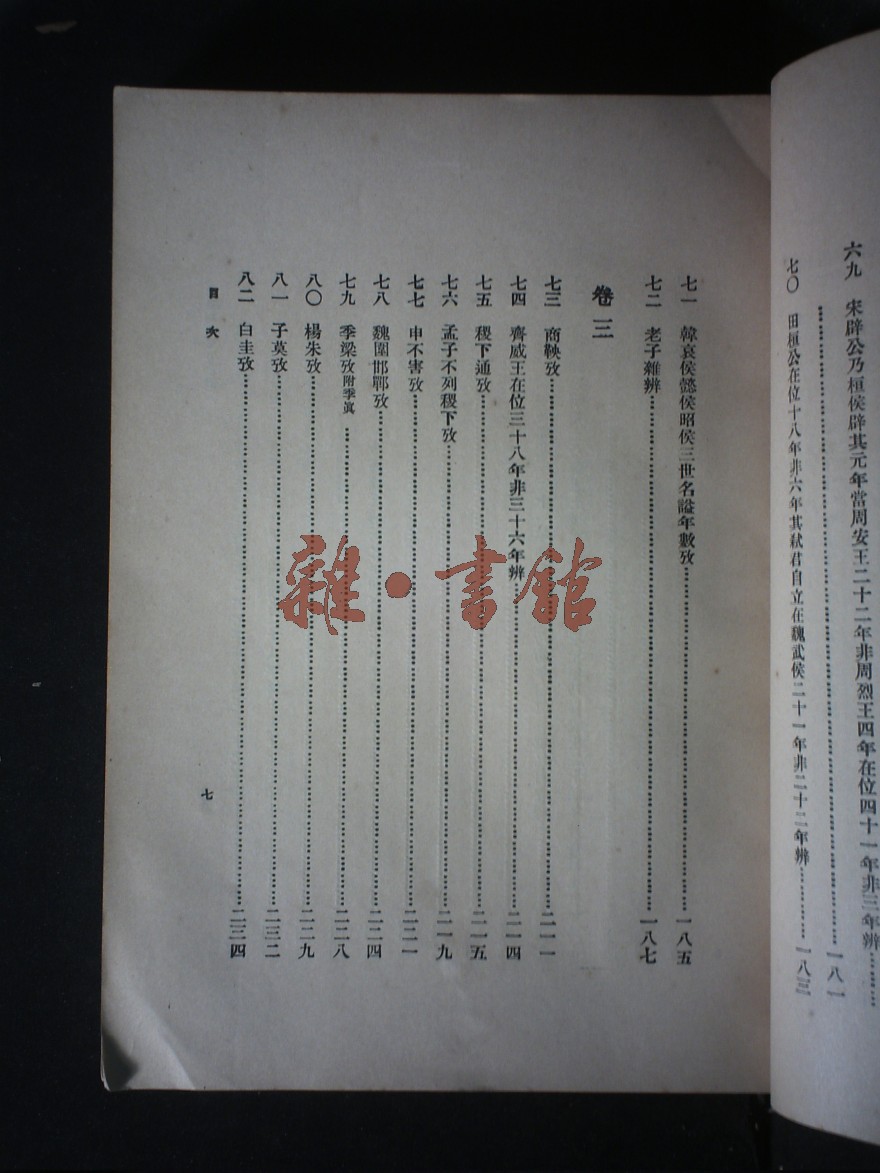 六九 宋辟公乃桓侯辟其元年當周安王二十二年非周烈王四年在位四十一年非三年辨……
……一八一
七〇 田桓公在位十八年非六年其弒君自立在魏武侯二十一年非二十二年辨……一八三
七一 韓哀侯懿侯昭侯三世名謚年數攷……一八五
七二 老子雜辨……一八七
卷三
七三 商鞅攷……二一一
七四 齊威王在位三十八年非三十六年辨……二一四
七五 稷下通攷……二一五
七六 孟子不列稷下攷……二一九
七七 申不害攷……二二一
七八 魏圍邯鄲攷……二二四
七九 季梁攷附季眞……二二八
八〇 楊朱攷……二二九
八一 子莫攷……二三二
八二 白圭攷……二三四
目次 七
雜·書館